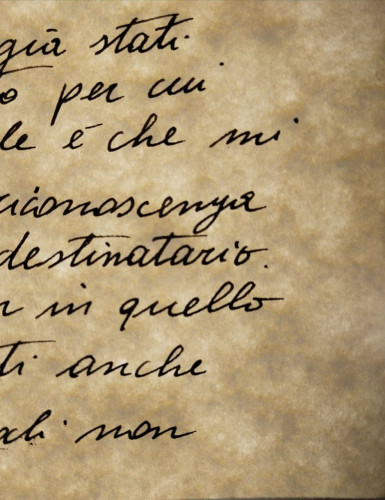 già stati
o per cui
le è che mi
riconoscenza
destinatario.
n in quello
ti anche
ali non